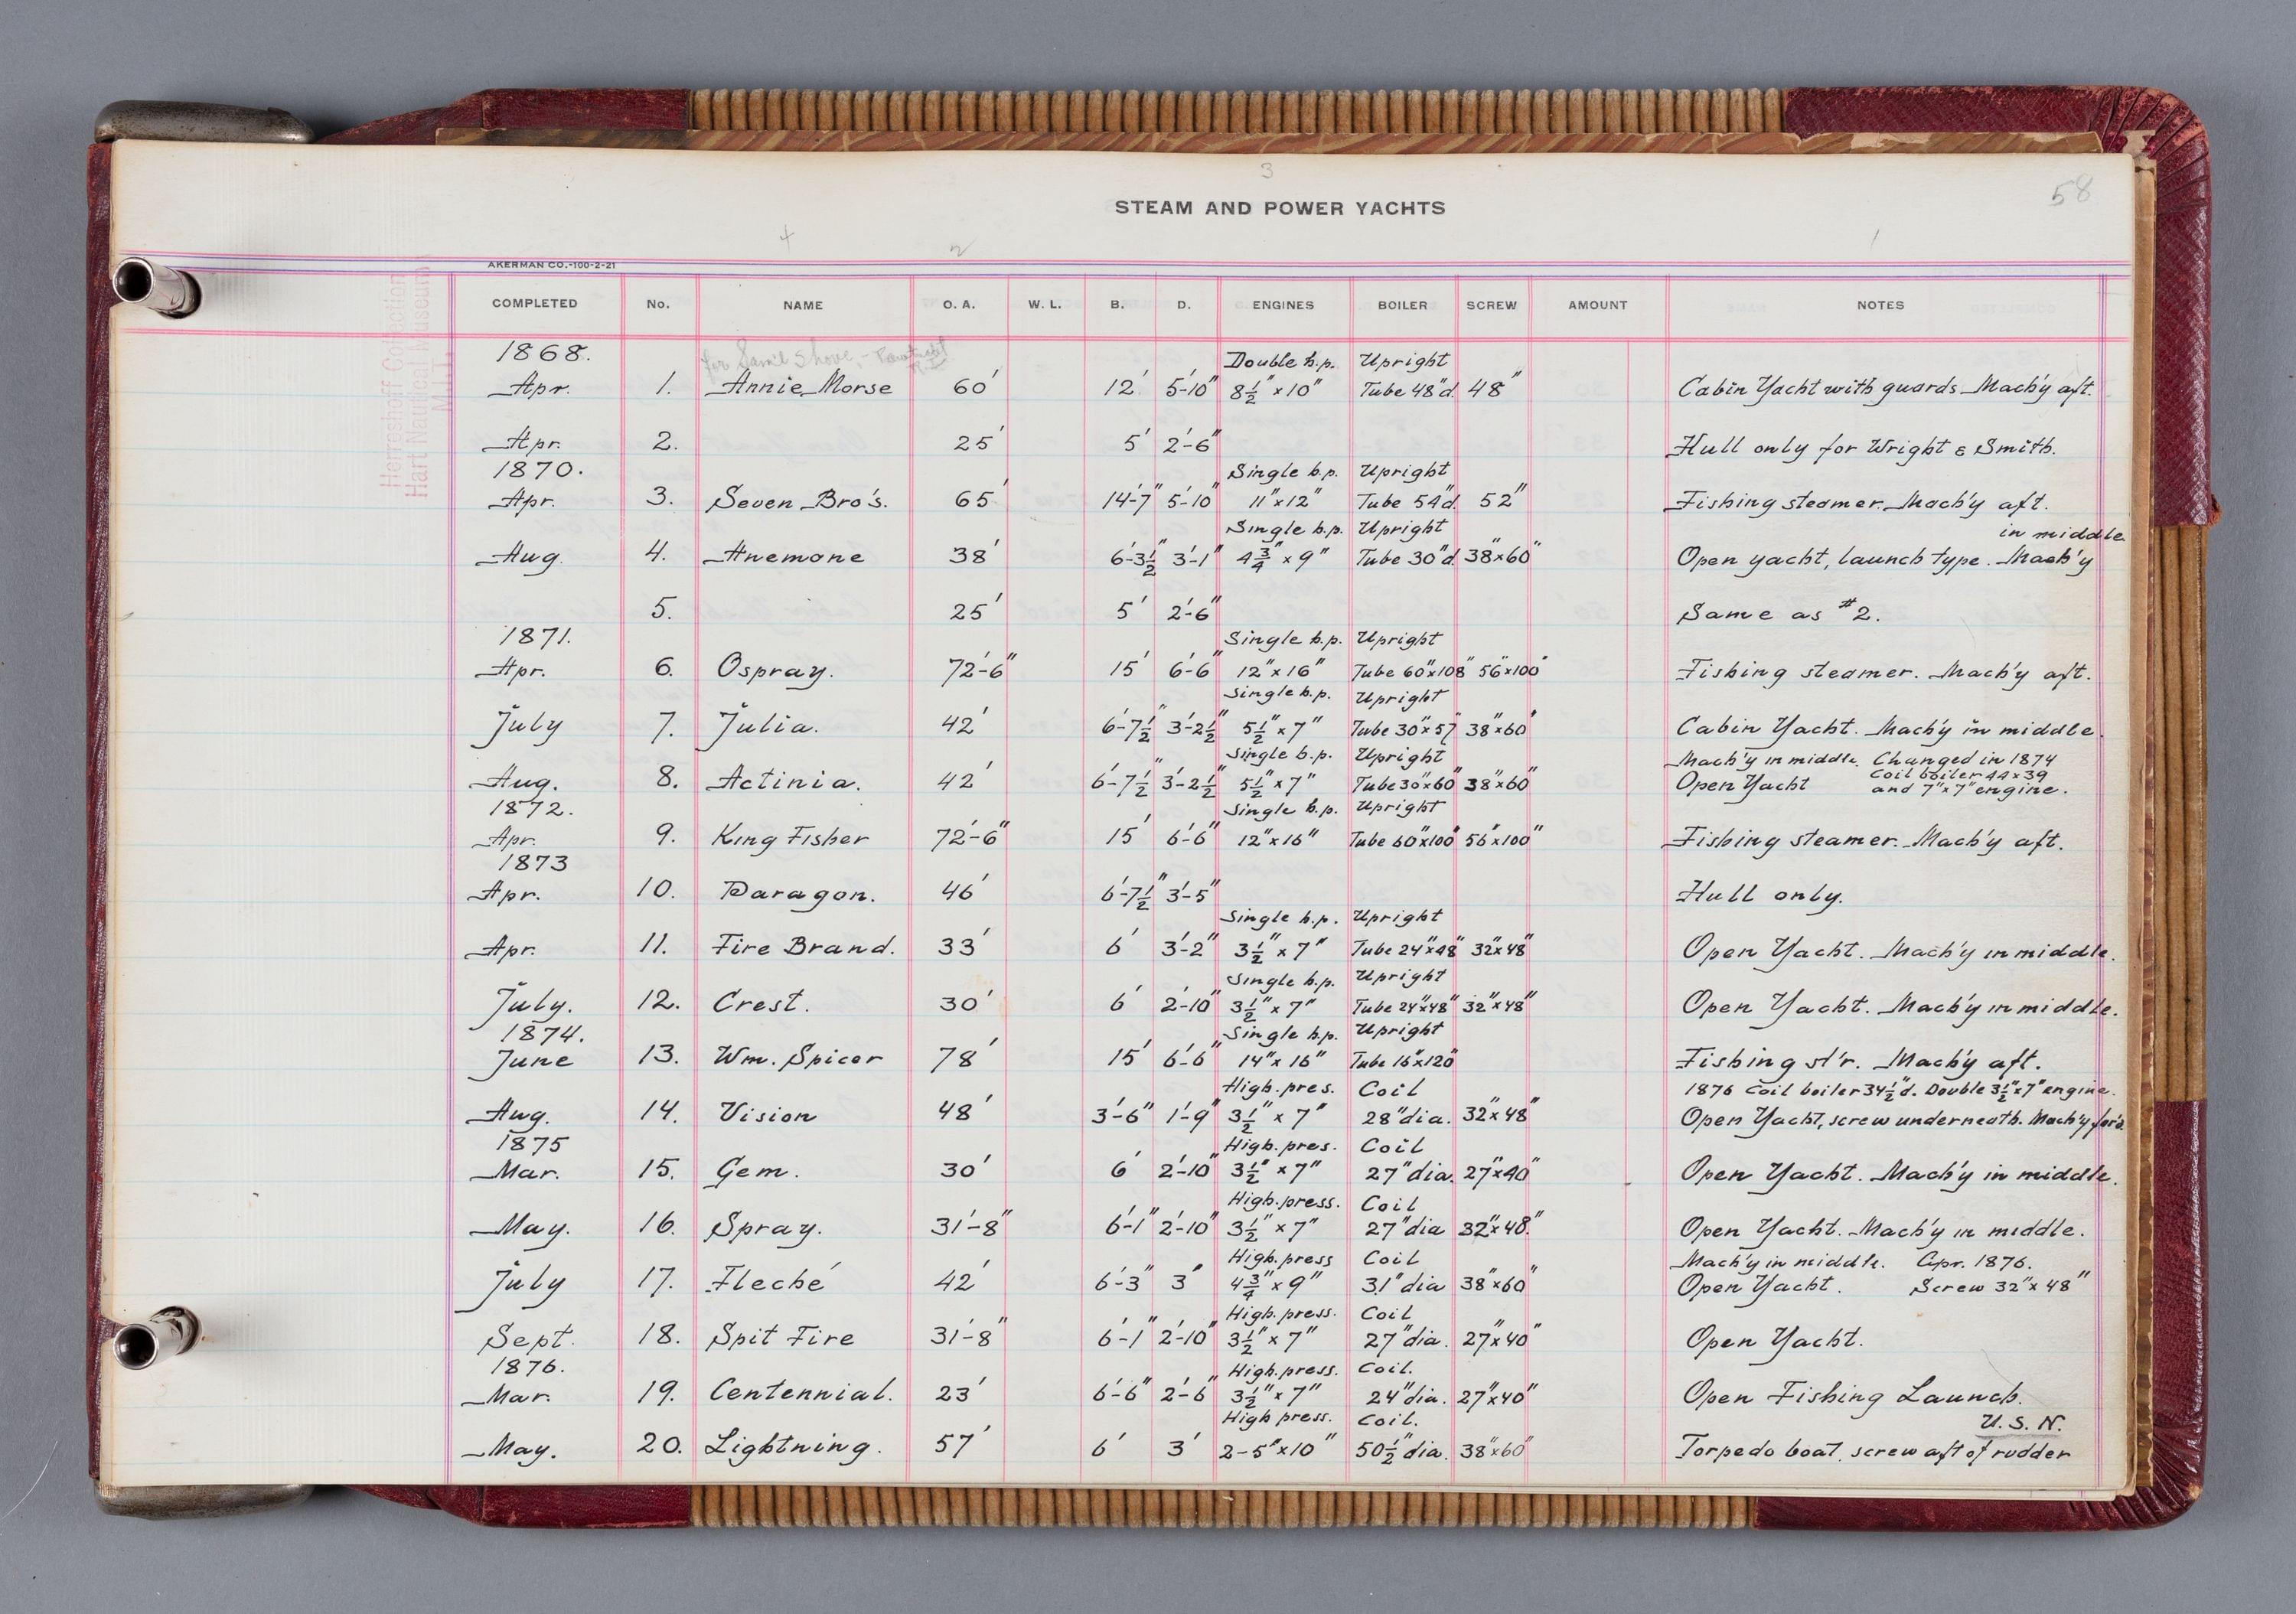 3
58
STEAM AND POWER YACHTS
4 2 1
AKERMAN CO.-100-2-21
Herreshoff Collection
Hart Nautical Museum
M.I.T.
COMPLETED No. NAME O. A. W. L. B. D. ENGINES BOILER SCREW AMOUNT NOTES
1868. for Sam'l Shove, - Double h.p. Upright
Apr. 1. Annie Morse 60' 12' 5'-10" 8½" x 10" Tube 48"d. 48" Cabin Yacht with guards Mach'y aft.
Apr. 2. 25' 5' 2'-6" Hull only for Wright & Smith.
1870. Single h.p. Upright
Apr. 3. Seven Bro's. 65' 14'-7" 5'-10" 11"x12" Tube 54"d. 52" Fishing steamer. Mach'y aft.
Single h.p. Upright in middle
Aug. 4. Anemone 38' 6'-3½" 3'-1" 4¾" x 9" Tube 30"d. 38"x60" Open yacht, launch type. Mach'y
5. 25' 5' 2'-6" Same as #2.
1871. Single h.p. Upright
Apr. 6. Ospray. 72'-6" 15' 6'-6" 12"x16" Tube 60"x108" 56"x100" Fishing steamer. Mach'y aft.
Single h.p. Upright
July 7. Julia. 42' 6'-7½" 3'-2½" 5½" x 7" Tube 30"x57" 38"x60" Cabin Yacht. Mach'y in middle.
Single h.p. Upright Mach'y in middle. Changed in 1874
Coil boiler 44x39
Aug. 8. Actinia. 42' 6'-7½" 3'-2½" 5½" x 7" Tube 30"x60" 38"x60" Open Yacht and 7"x7" engine.
1872. Single h.p. Upright
Apr. 9. King Fisher 72'-6" 15' 6'-6" 12"x16" Tube 60"x100" 56"x100" Fishing steamer. Mach'y aft.
1873
Apr. 10. Paragon. 46' 6'-7½" 3'-5" Hull only.
Single h.p. Upright
Apr. 11. Fire Brand. 33' 6' 3'-2" 3½" x 7" Tube 24"x48" 32"x48" Open Yacht. Mach'y in middle.
Single h.p. Upright
July. 12. Crest. 30' 6' 2'-10" 3½" x 7" Tube 24"x48" 32"x48" Open Yacht. Mach'y in middle.
1874. Single h.p. Upright
June 13. Wm. Spicer 78' 15' 6'-6" 14"x16" Tube 16"x120" Fishing st'r. Mach'y aft.
High. pres. Coil 1876 Coil boiler 34½"d. Double 3½"x7" engine.
Aug. 14. Vision 48' 3'-6" 1'-9" 3½" x 7" 28"dia. 32"x48" Open Yacht, screw underneath. Mach'y for'd.
1875 High. pres. Coil
Mar. 15. Gem. 30' 6' 2'-10" 3½" x 7" 27"dia. 27"x40" Open Yacht. Mach'y in middle.
High. press. Coil
May. 16. Spray. 31'-8" 6'-1" 2'-10" 3½" x 7" 27"dia 32"x48." Open Yacht. Mach'y in middle.
High. press Coil Mach'y in middle. Apr. 1876.
July 17. Fleché 42' 6'-3" 3' 4¾" x 9" 31"dia 38"x60" Open Yacht. Screw 32"x48"
High. press. Coil
Sept. 18. Spit Fire 31'-8" 6'-1" 2'-10" 3½" x 7" 27"dia. 27"x40" Open Yacht.
1876. High. press. Coil.
Mar. 19. Centennial. 23' 6'-6" 2'-6" 3½" x 7" 24"dia. 27"x40" Open Fishing Launch.
High press. Coil. U.S.N.
May. 20. Lightning. 57' 6' 3' 2-5"x10" 50½"dia. 38"x60" Torpedo boat, screw aft of rudder